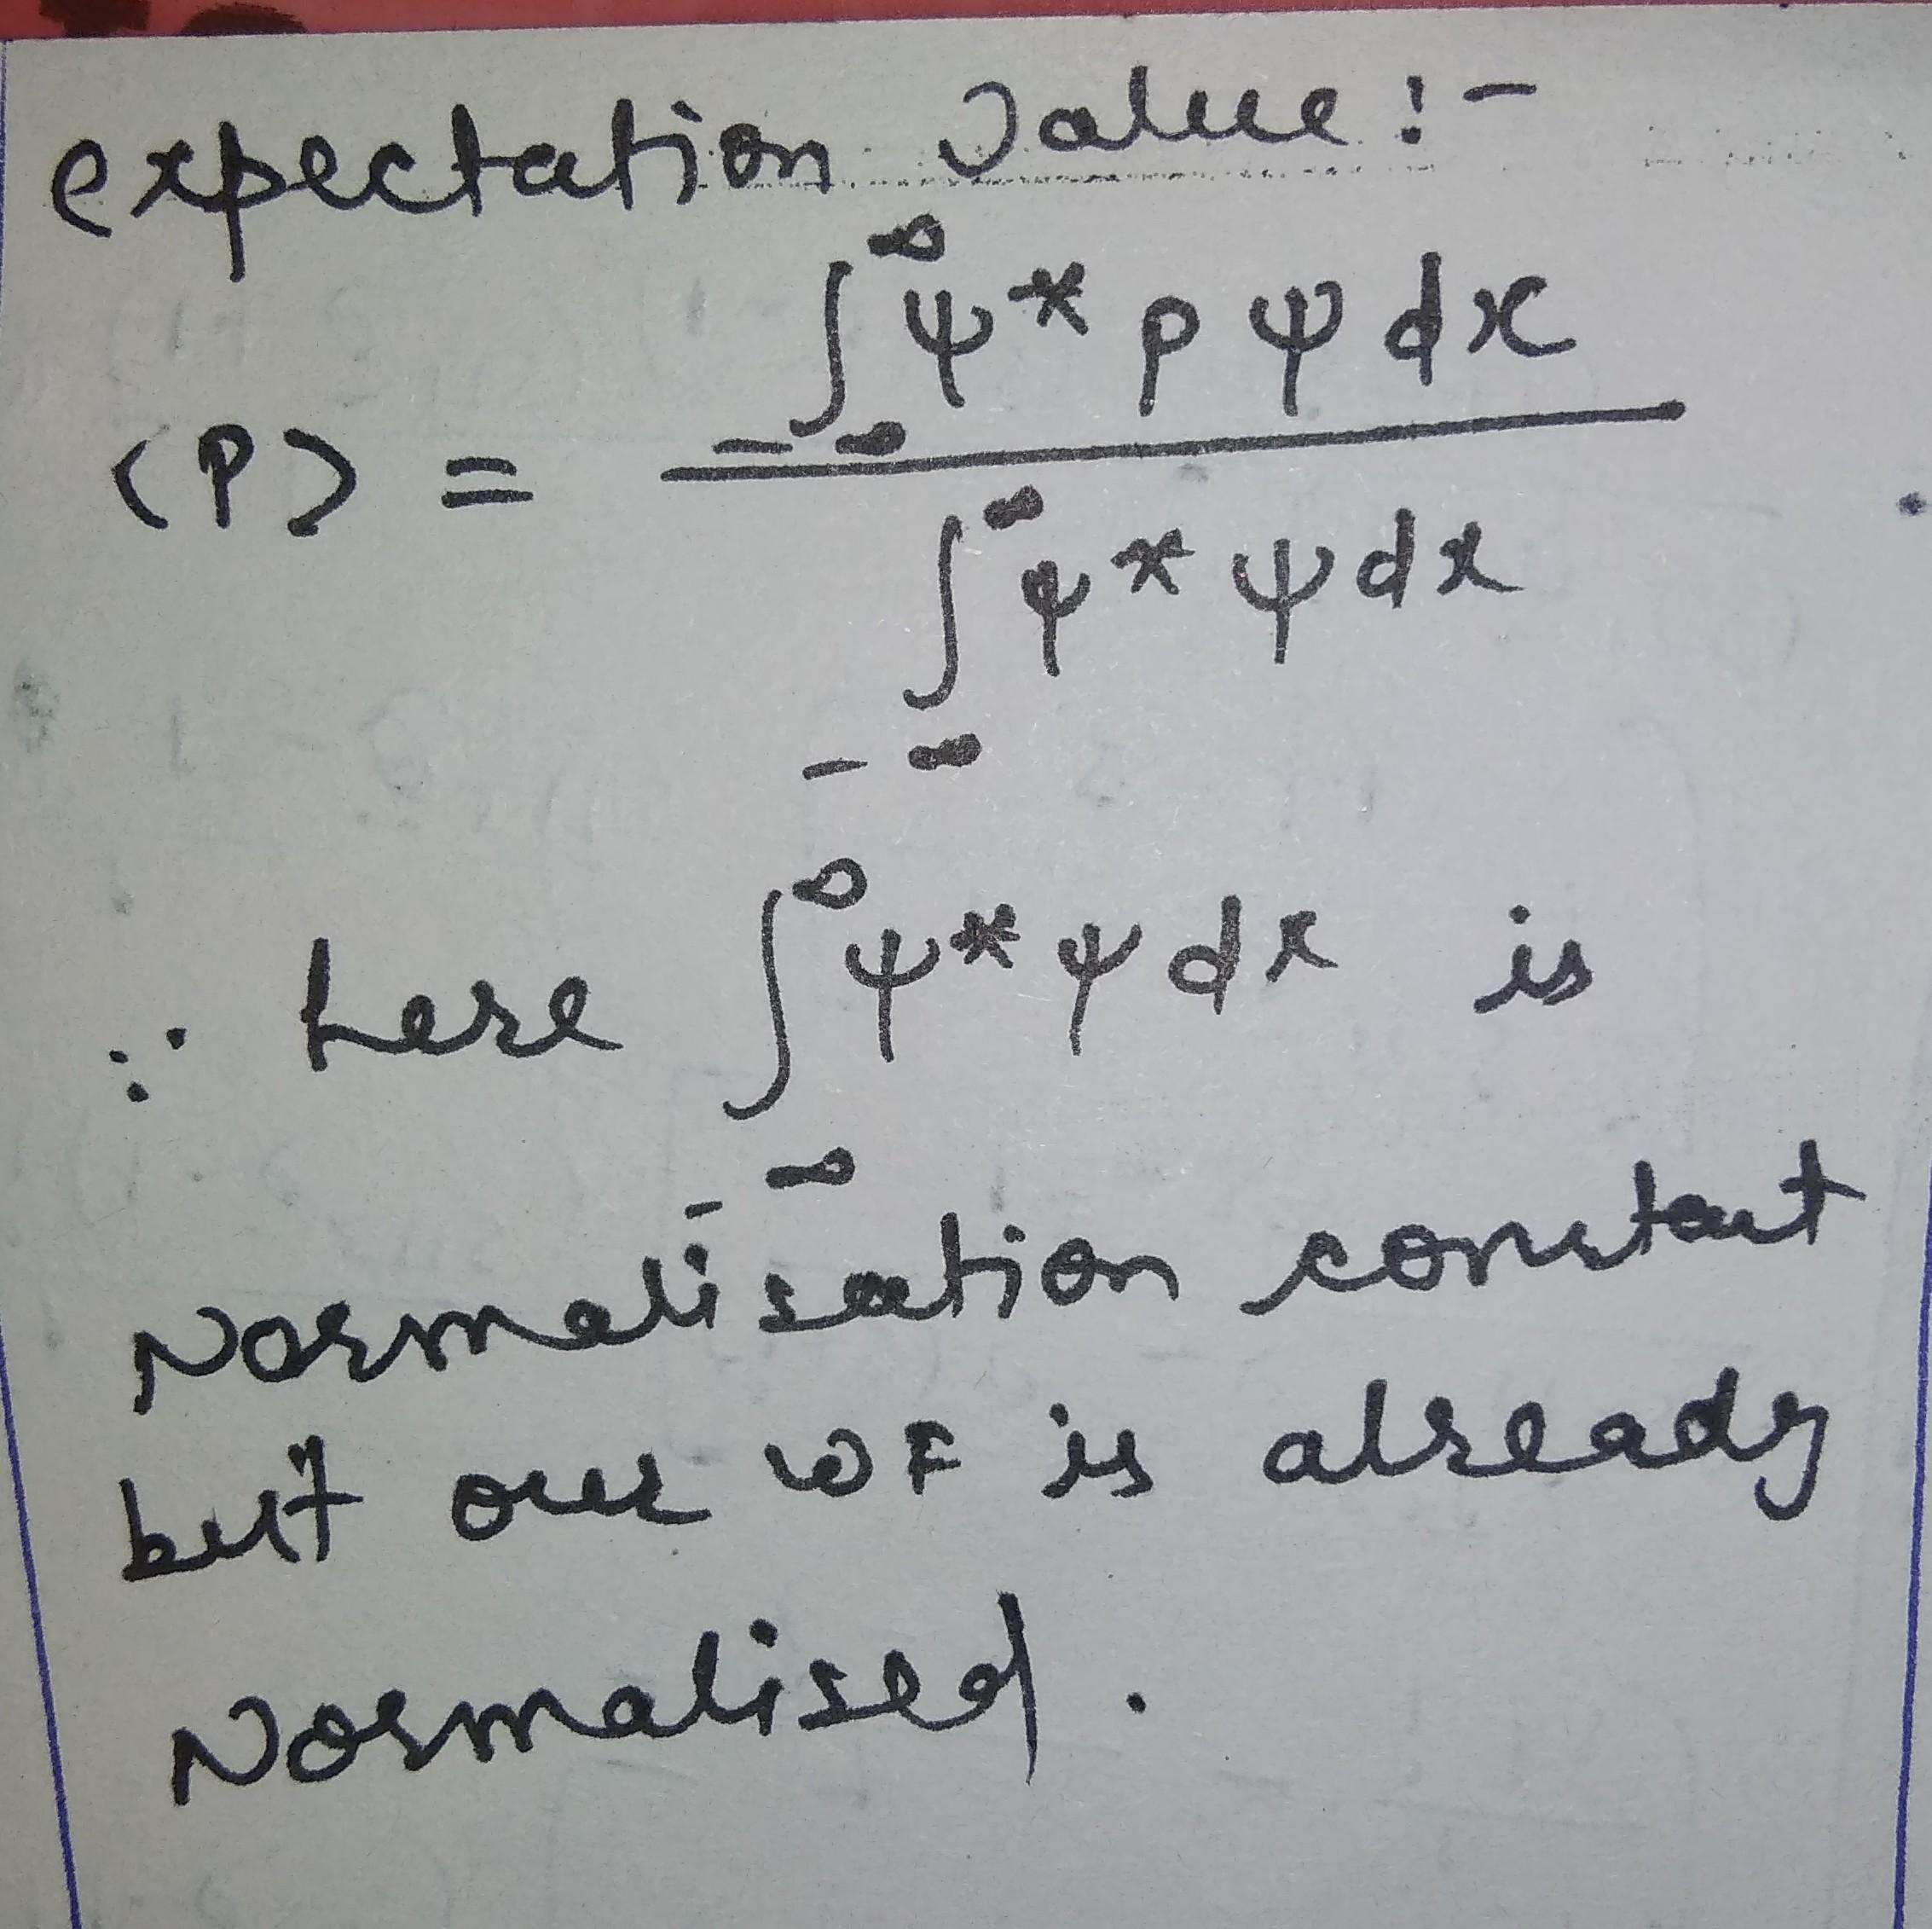 expectation value :-
⟨P⟩ = ∫_{-∞}^{∞} ψ* p ψ dx / ∫_{-∞}^{∞} ψ* ψ dx
∵ here ∫_{-∞}^{∞} ψ* ψ dx is
Normalisation constant
but our WF is already
Normalised.